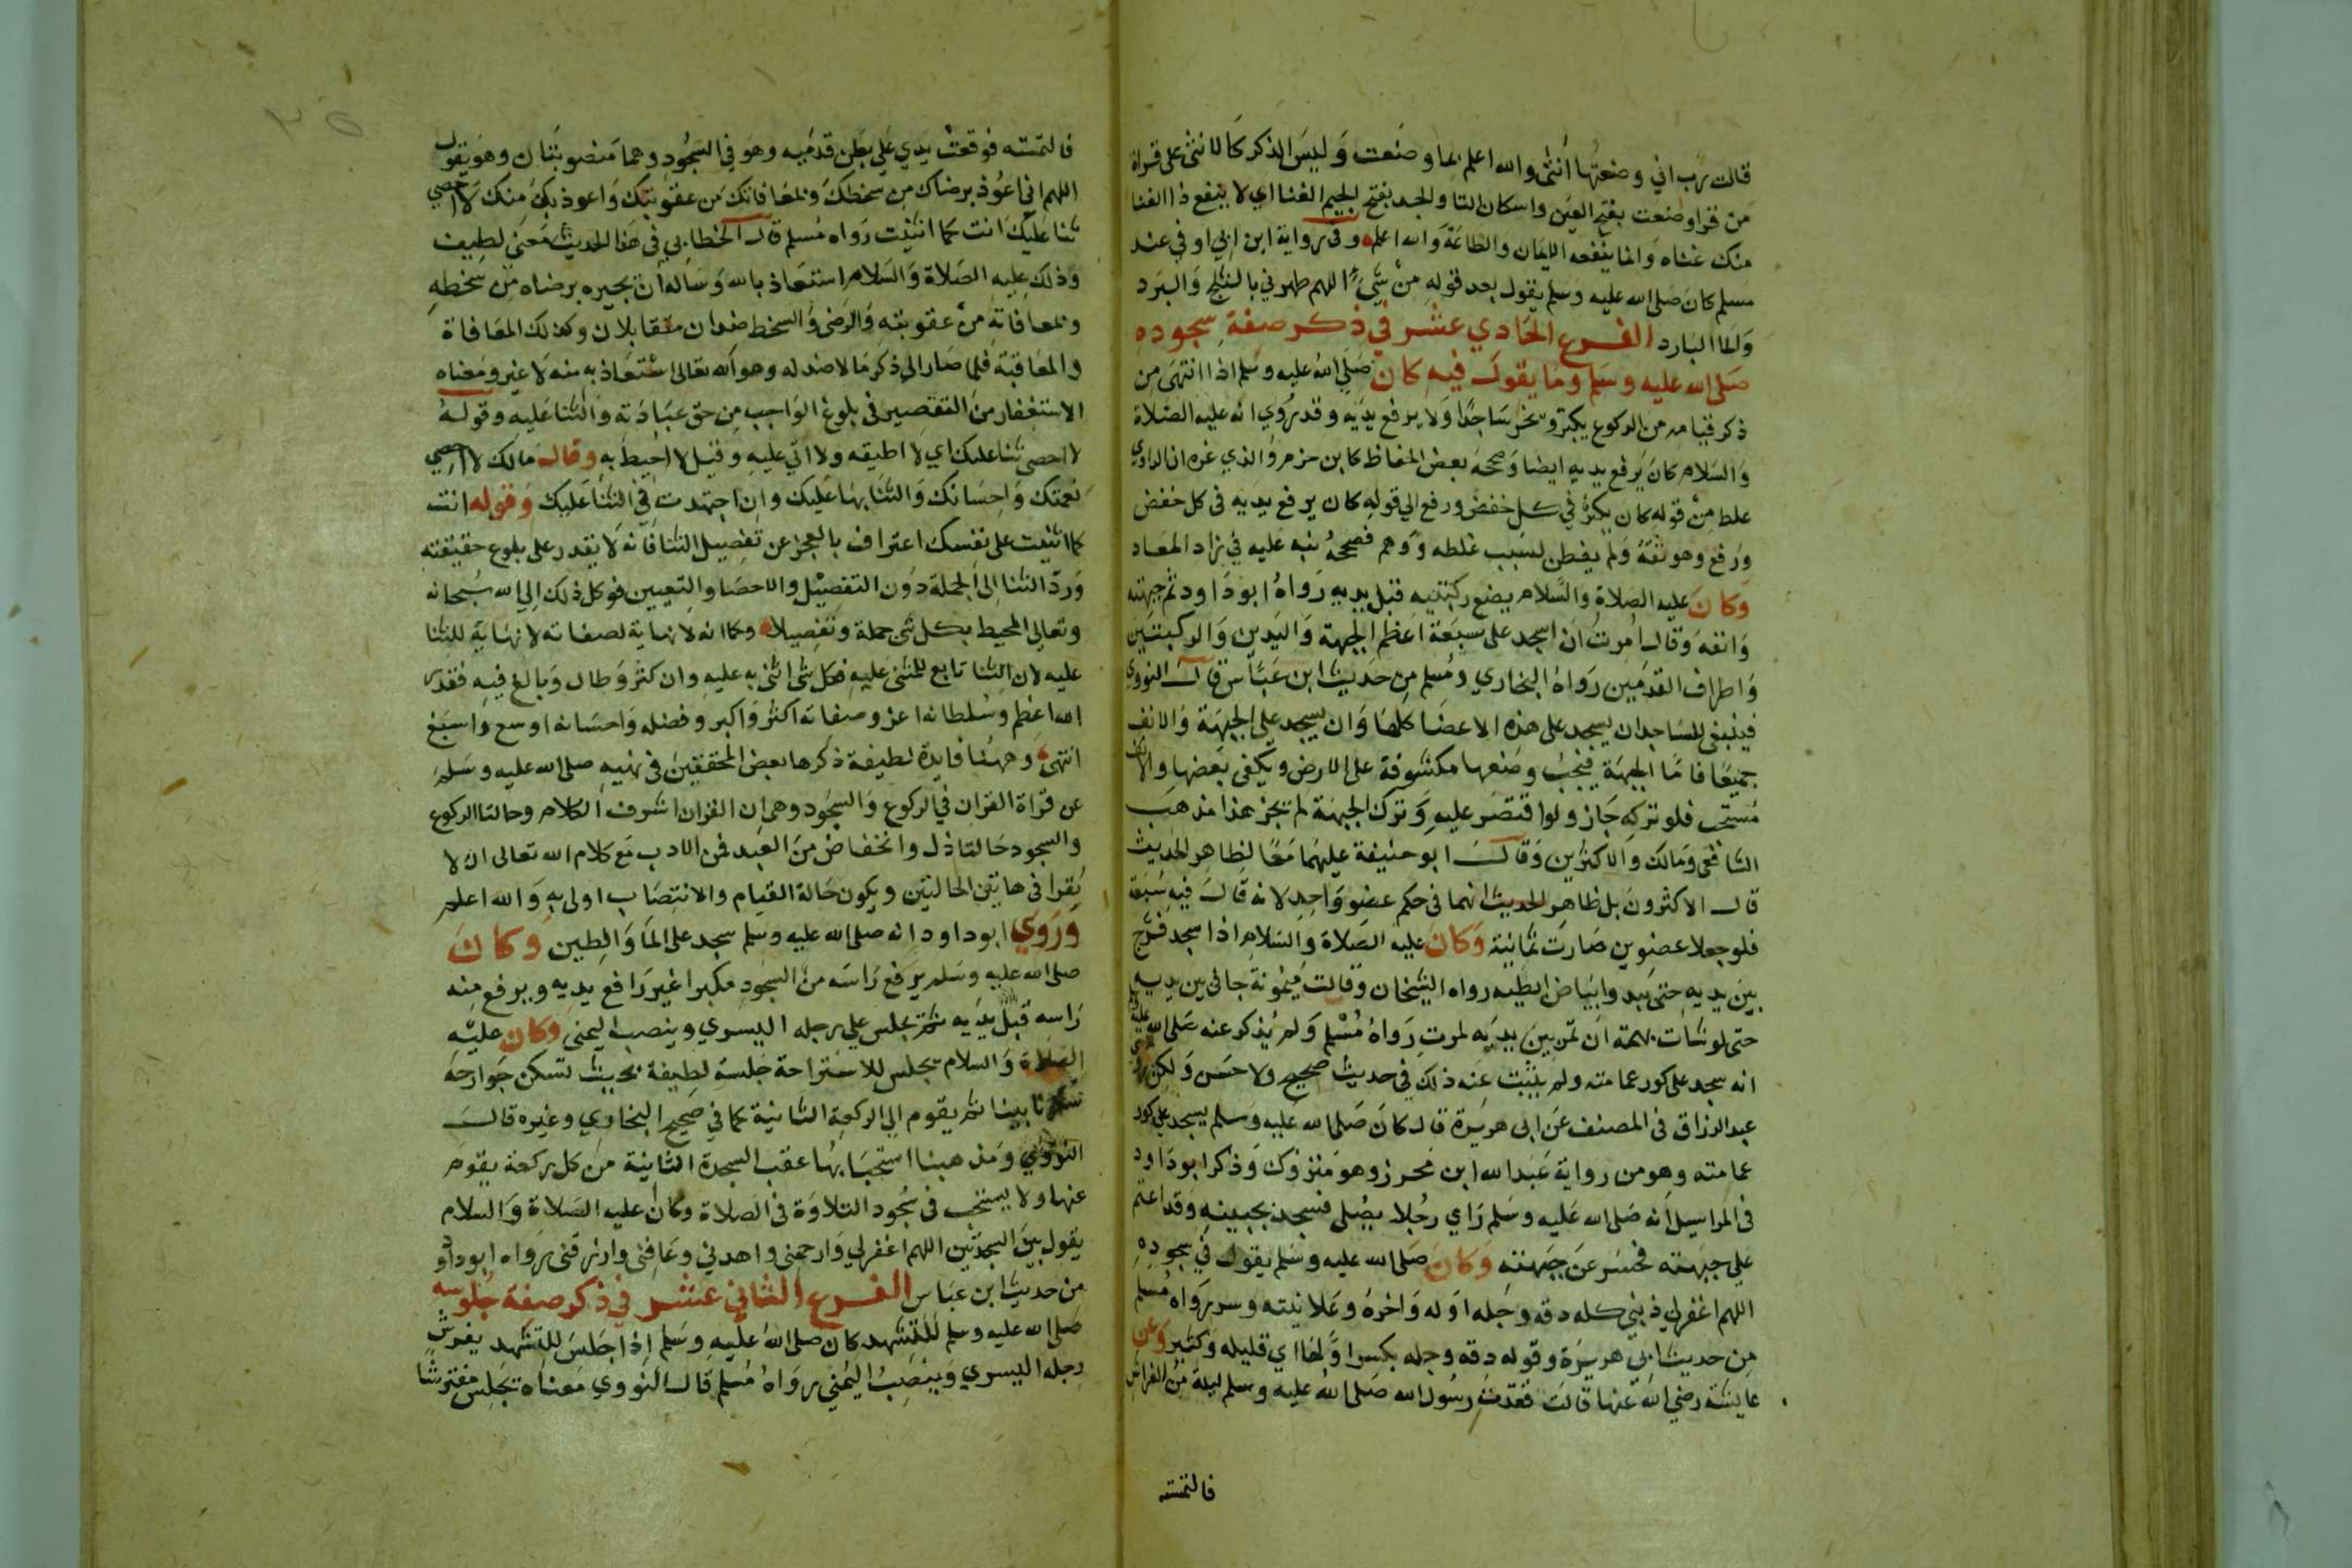 قالت رب اني وضعتها أنثى والله اعلم بما وضعت وليس الذكر كالانثى على قراة
من قرا وضعت بفتح العين واسكان التا والجد بفتح الجيم الغنا اي لا ينفع ذا الغنا
منك غناه وانما ينفعه الايمان والطاعة والله اعلم وفي رواية ابن ابي اوفي عند
مسلم كان صلى الله عليه وسلم يقول بعد قوله من شيء اللهم طهرني بالثلج والبرد
والما البارد الفرع الحادي عشر في ذكر صفة سجوده
صلى الله عليه وسلم وما يقول فيه كان صلى الله عليه وسلم اذا انتهى من
ذكر قيامه من الركوع يكبر ويخر ساجدا ولا يرفع يديه وقد روي انه عليه الصلاة
والسلام كان يرفع يديه ايضا وصححه بعض الحفاظ كابن حزم والذي غره ان الراوي
غلط من قوله كان يكبر في كل خفض ورفع الي قوله كان يرفع يديه في كل خفض
ورفع وهو ثقة ولم يفطن لسبب غلطه ووهم فصححه نبه عليه في زاد المعاد
وكان عليه الصلاة والسلام يضع ركبتيه قبل يديه رواه ابو داود ثم جبهته
وانفه وقال امرت ان اسجد على سبعة اعظم الجبهة واليدين والركبتين
واطراف القدمين رواه البخاري ومسلم من حديث ابن عباس قال النووي
فينبغي للساجد ان يسجد على هذه الاعضا كلها وان يسجد على الجبهة والانف
جميعا فاما الجبهة فيجب وضعها مكشوفة على الارض ويكفي بعضها والانف
مستحب فلو تركه جاز ولو اقتصر عليه وترك الجبهة لم يجز هذا مذهب
الشافعي ومالك والاكثرين وقال ابو حنيفة عليهما معا لظاهر الحديث
قال الاكثرون بل ظاهر الحديث انهما في حكم عضو واحد لانه قال فيه سبعة
فلو جعلا عضوين صارت ثمانية وكان عليه الصلاة والسلام اذا سجد فرج
بين يديه حتى يبدوا بياض ابطيه رواه الشيخان وقالت ميمونة جافى بين يديه
حتى لو شات بهمة ان تمر بين يديه لمرت رواه مسلم ولم يذكر عنه صلى الله عليه وسلم
انه سجد على كور عمامته ولم يثبت عنه ذلك في حديث صحيح ولا حسن ولكن روى
عبد الرزاق في المصنف عن ابي هريرة قال كان صلى الله عليه وسلم يسجد على كور
عمامته وهو من رواية عبد الله ابن محرز وهو متروك وذكر ابو داود
في المراسيل انه صلى الله عليه وسلم راي رجلا يصلى فسجد بجبينه وقد اعتم
علي جبهته فحسر عن جبهته وكان صلى الله عليه وسلم يقول في سجوده
اللهم اغفر لي ذنبي كله دقه وجله اوله واخره وعلانيته وسره رواه مسلم
من حديث ابي هريرة وقوله دقه وجله بكسر اولها اي قليله وكثيره وعن
عايشة رضي الله عنها قالت فقدت رسول الله صلى الله عليه وسلم ليلة من الفراش
فالتمسته
فالتمسته فوقعت يدي علي بطن قدميه وهو في السجود وهما منصوبتان وهو يقول
اللهم اني اعوذ برضاك من سخطك وبمعافاتك من عقوبتك واعوذ بك منك لا احصي
ثنا عليك انت كما اثنيت رواه مسلم قال الخطابي في هذا الحديث معنى لطيف
وذلك عليه الصلاة والسلام استعاذ بالله وساله ان يجيره برضاه من سخطه
وبمعافاته من عقوبته والرضى والسخط ضدان متقابلان وكذلك المعافاة
والمعاقبة فلما صار الي ذكر ما لا ضد له وهو الله تعالى استعاذ به منه لا غير ومعناه
الاستغفار من التقصير في بلوغ الواجب من حق عبادته والثنا عليه وقوله
لا احصى ثنا عليك اي لا اطيقه ولا اتي عليه وقيل لا احيط به وقال مالك لا احصي
نعمتك واحسانك والثنا بها عليك وان اجتهدت في الثنا عليك وقوله انت
كما اثنيت على نفسك اعتراف بالعجز عن تفصيل الثنا فانه لا يقدر على بلوغ حقيقته
ورد الثنا الى الجملة دون التفصيل والاحصا والتعيين فوكل ذلك الى الله سبحانه
وتعالي المحيط بكل شي جملة وتفصيلا وكما انه لا نهاية لصفاته لا نهاية للثنا
عليه لان الثنا تابع للمثنى عليه فكل شي اثنى به عليه وان كثر وطال وبالغ فيه فقدر
الله اعظم وسلطانه اعز وصفاته اكثر واكبر وفضله واحسانه اوسع واسبغ
انتهى وههنا فايدة لطيفة ذكرها بعض المحققين في نهيه صلى الله عليه وسلم
عن قراة القران في الركوع والسجود وهي ان القران اشرف الكلام وحالتا الركوع
والسجود حالتا ذل وانخفاض من العبد فمن الادب مع كلام الله تعالى ان لا
يقرا في هاتين الحالتين ويكون حالة القيام والانتصاب اولى به والله اعلم
وروي ابو داود انه صلى الله عليه وسلم سجد على الما والطين وكان
صلى الله عليه وسلم يرفع راسه من السجود مكبرا غير رافع يديه ويرفع منه
راسه قبل يديه ثم يجلس علي رجله اليسري وينصب اليمني وكان عليه
الصلاة والسلام يجلس للاستراحة جلسة لطيفة بحيث تسكن جوارحه
سكونا بينا ثم يقوم الي الركعة الثانية كما في صحيح البخاري وغيره قال
النووي ومذهبنا استحبابها عقب السجدة الثانية من كل ركعة يقوم
عنها ولا يستحب في سجود التلاوة في الصلاة وكان عليه الصلاة والسلام
يقول بين السجدتين اللهم اغفر لي وارحمني واهدني وعافني وارزقني رواه ابو داود
من حديث ابن عباس الفرع الثاني عشر في ذكر صفة جلوسه
صلى الله عليه وسلم للتشهد كان صلى الله عليه وسلم اذا جلس للتشهد يفرش
رجله اليسري وينصب اليمني رواه مسلم قال النووي معناه يجلس مفترشا